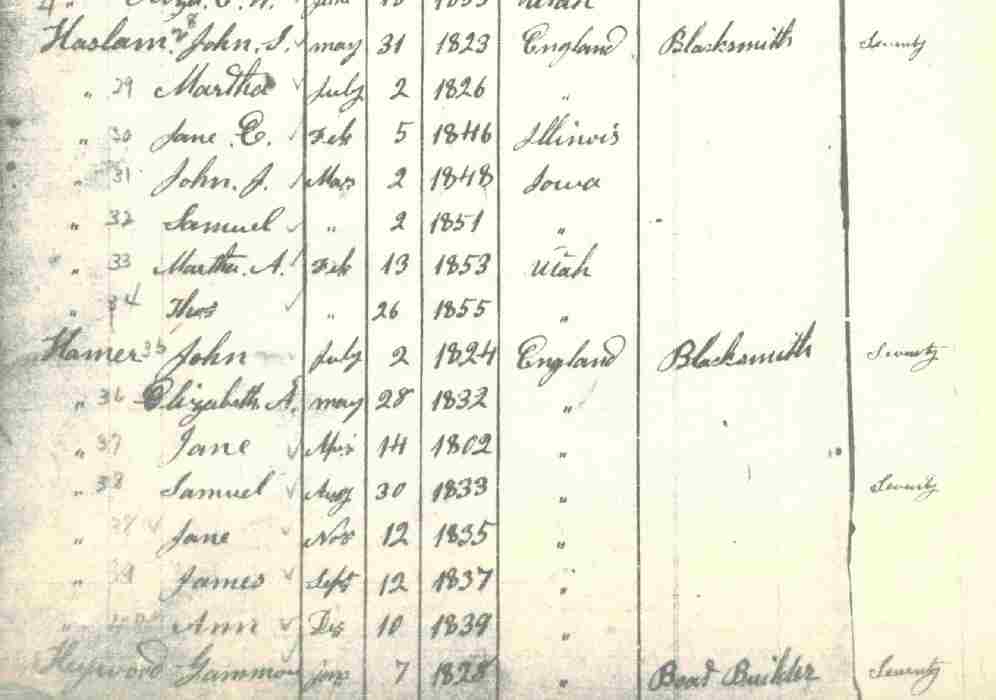 Utah
Haslam 28 John. S. May 31 1823 England Blacksmith Seventy
" 29 Martha July 2 1826 "
" 30 Jane. E. Feb 5 1846 Illinois
" 31 John. J. Mar 2 1848 Iowa
" 32 Samuel " 2 1851 "
" 33 Martha. A. Feb 13 1853 Utah
" 34 Thos " 26 1855 "
Hamer 35 John July 2 1824 England Blacksmith Seventy
" 36 Elizabeth. A. May 28 1832 "
" 37 Jane Apr 14 1802 "
" 38 Samuel Aug 30 1833 " Seventy
Jane Nov 12 1835 "
" 39 James Sept 12 1837 "
" Ann Dec 10 1839 "
Heywood Gammon Jan 7 1828 " Boat Builder Seventy